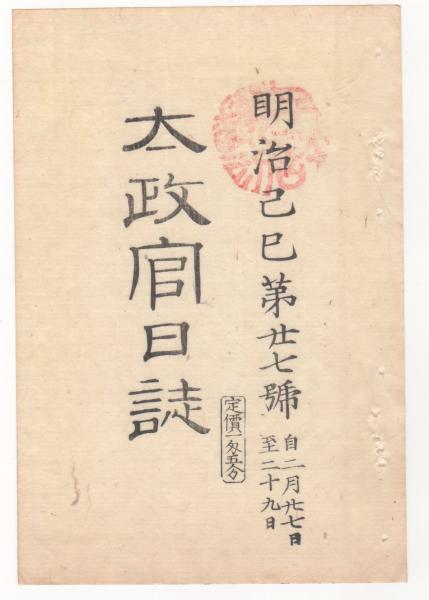 明治己巳第廿七號
自二月廿七日
至二十九日
太政官日誌
定價一匁五分